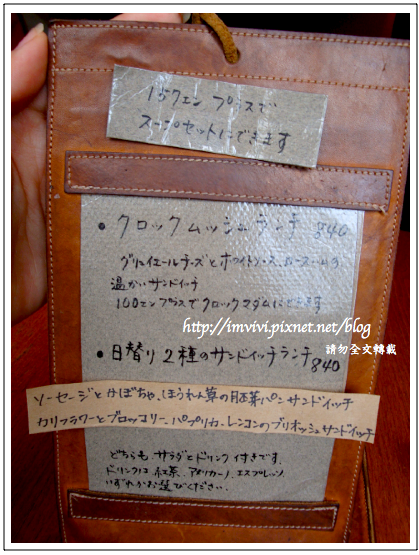 157エン プラスで
スープセットにできます
• クロックムッシューランチ 840
グリュイエールチーズとホワイトソース、ロースハムの
温かいサンドイッチ
100エンプラスでクロックマダムにできます
http://imvivi.pixnet.net/blog
請勿全文轉載
• 日替り2種のサンドイッチランチ 840
ソーセージとかぼちゃ、ほうれん草の胚芽パンサンドイッチ
カリフラワーとブロッコリー、パプリカ、レンコンのブリオッシュサンドイッチ
どちらも サラダとドリンク付きです。
ドリンクは 紅茶、アメリカーノ、エスプレッソ
いずれかお選びください。